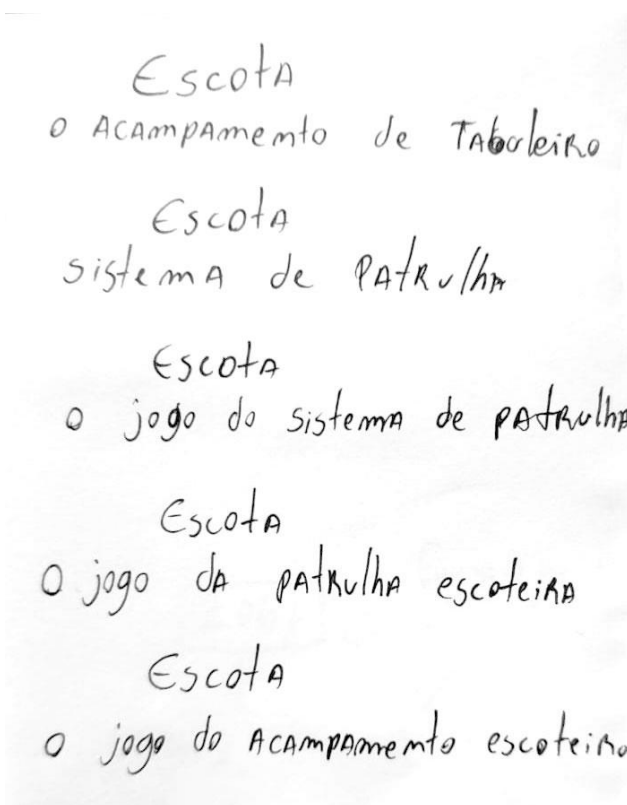 Escota
o Acampamento de Tabuleiro
Escota
sistema de Patrulha
Escota
o jogo do sistema de patrulha
Escota
O jogo da patrulha escoteira
Escota
o jogo do Acampamento escoteiro